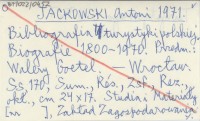 JACKOWSKI Antoni 1971.
Bibliografia turystyki polskiej.
Biografie 1800-1970. Przedm.:
Walery Goetel. - Wrocław.
Ss. 170, Sum., Rés., Zsf., Rez.,
okł., cm 24 x 17. Studia i Materiały
], Zakład Zagospodarowania